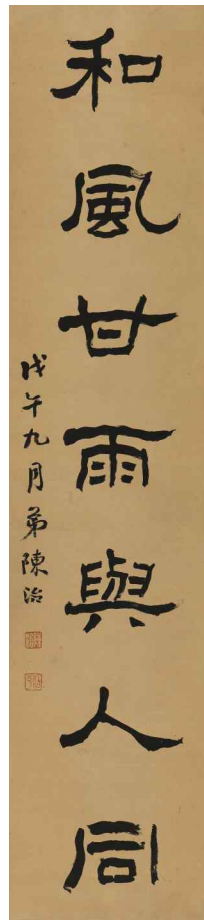 和風甘雨與人同
戊午九月弟陳治